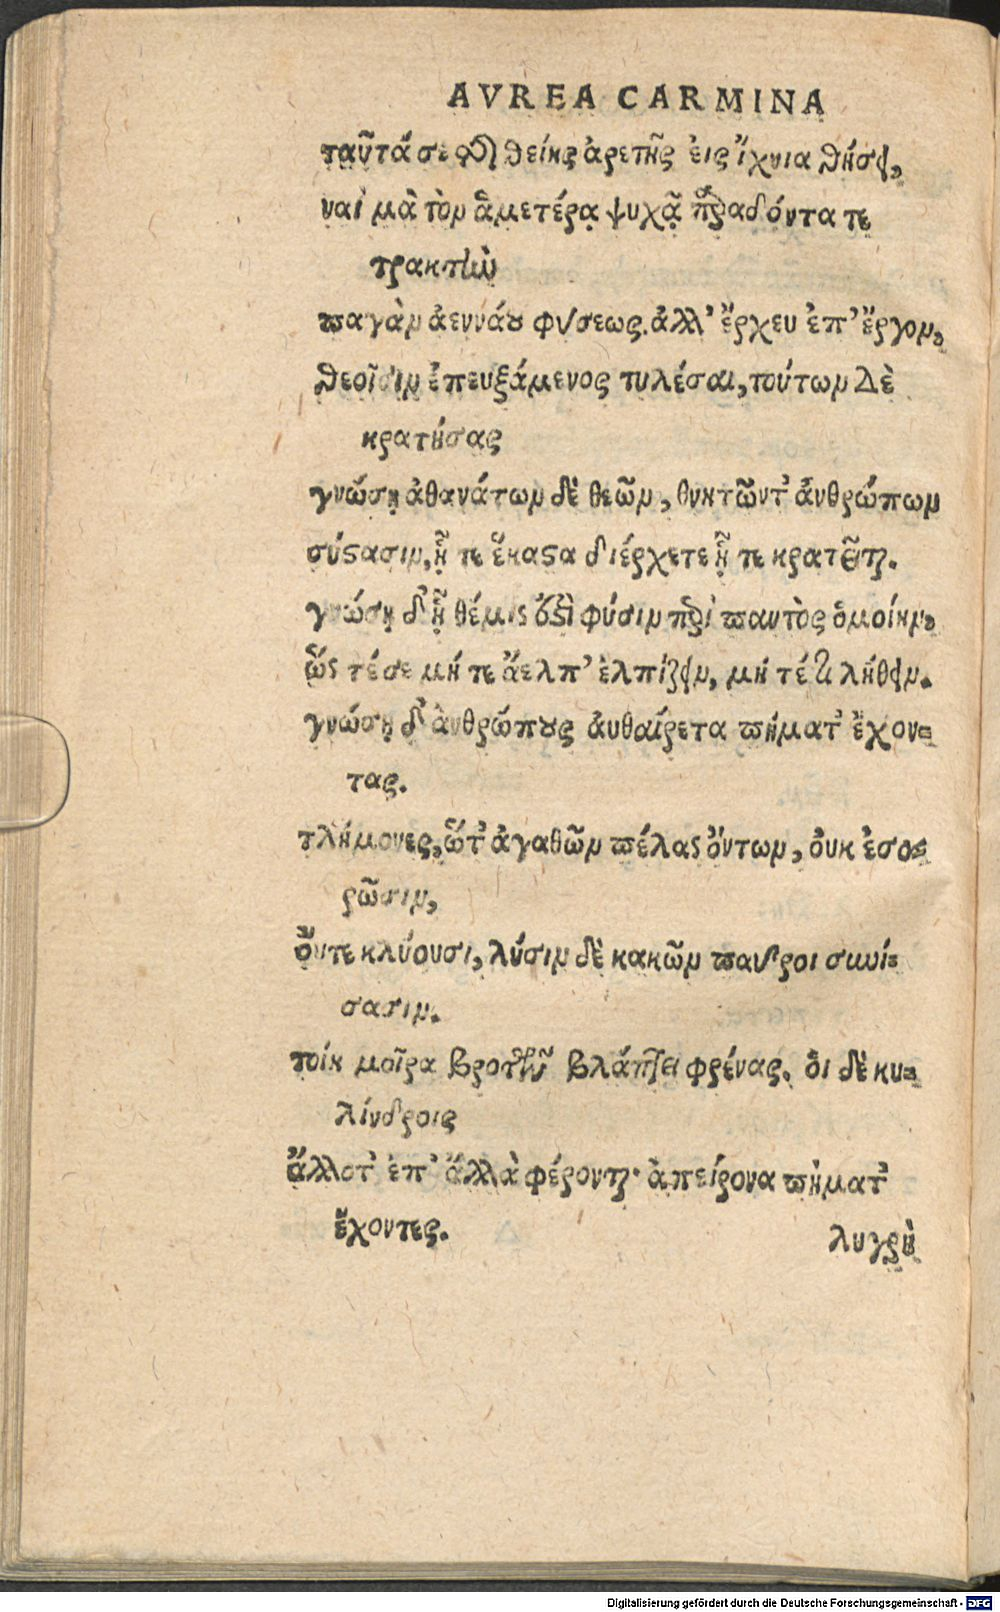 AVREA CARMINA
ταῦτά σε τ῀ θείης ἀρετῆς ἐις ἴχνια θήσει,
ναὶ μὰ τὸν ἁμετέρᾳ ψυχᾷ παραδόντα τε
τρακτὺν
παγὰν ἀεννάου φύσεως. ἀλλ' ἔρχευ ἐπ' ἔργον,
θεοῖσιν ἐπευξάμενος τελέσαι, τούτων δὲ
κρατήσας
γνώσῃ ἀθανάτων δὲ θεῶν, θνητῶντ' ἀνθρώπων
σύστασιν, ᾗ τε ἕκαστα διέρχετε ᾗ τε κρατεῖται.
γνώσῃ δ' ᾗ θέμις ὀςὶ φύσιν περὶ παντὸς ὁμοίην,
ὥς τέ σε μή τε ἄελπ' ἐλπίζειν, μή τέ τι λήθειν.
γνώσῃ δ' ἀνθρώπους ἀυθαίρετα πήματ' ἔχον=
τας.
τλήμονες, ὥτ' ἀγαθῶν πέλας ὄντων, ὀυκ ἐσο=
ρῶσιν,
ὄυτε κλύουσι, λύσιν δὲ κακῶν παῦροι συνί=
σασιν.
τοίη μοῖρα βροτῶν βλάπτει φρένας. ὁι δὲ κυ=
λίνδροις
ἄλλοτ' ἐπ' ἄλλὰ φέρονται· ἀπείρονα πήματ'
ἔχοντες.
λυγρὴ
Digitalisierung gefördert durch die Deutsche Forschungsgemeinschaft - DFG